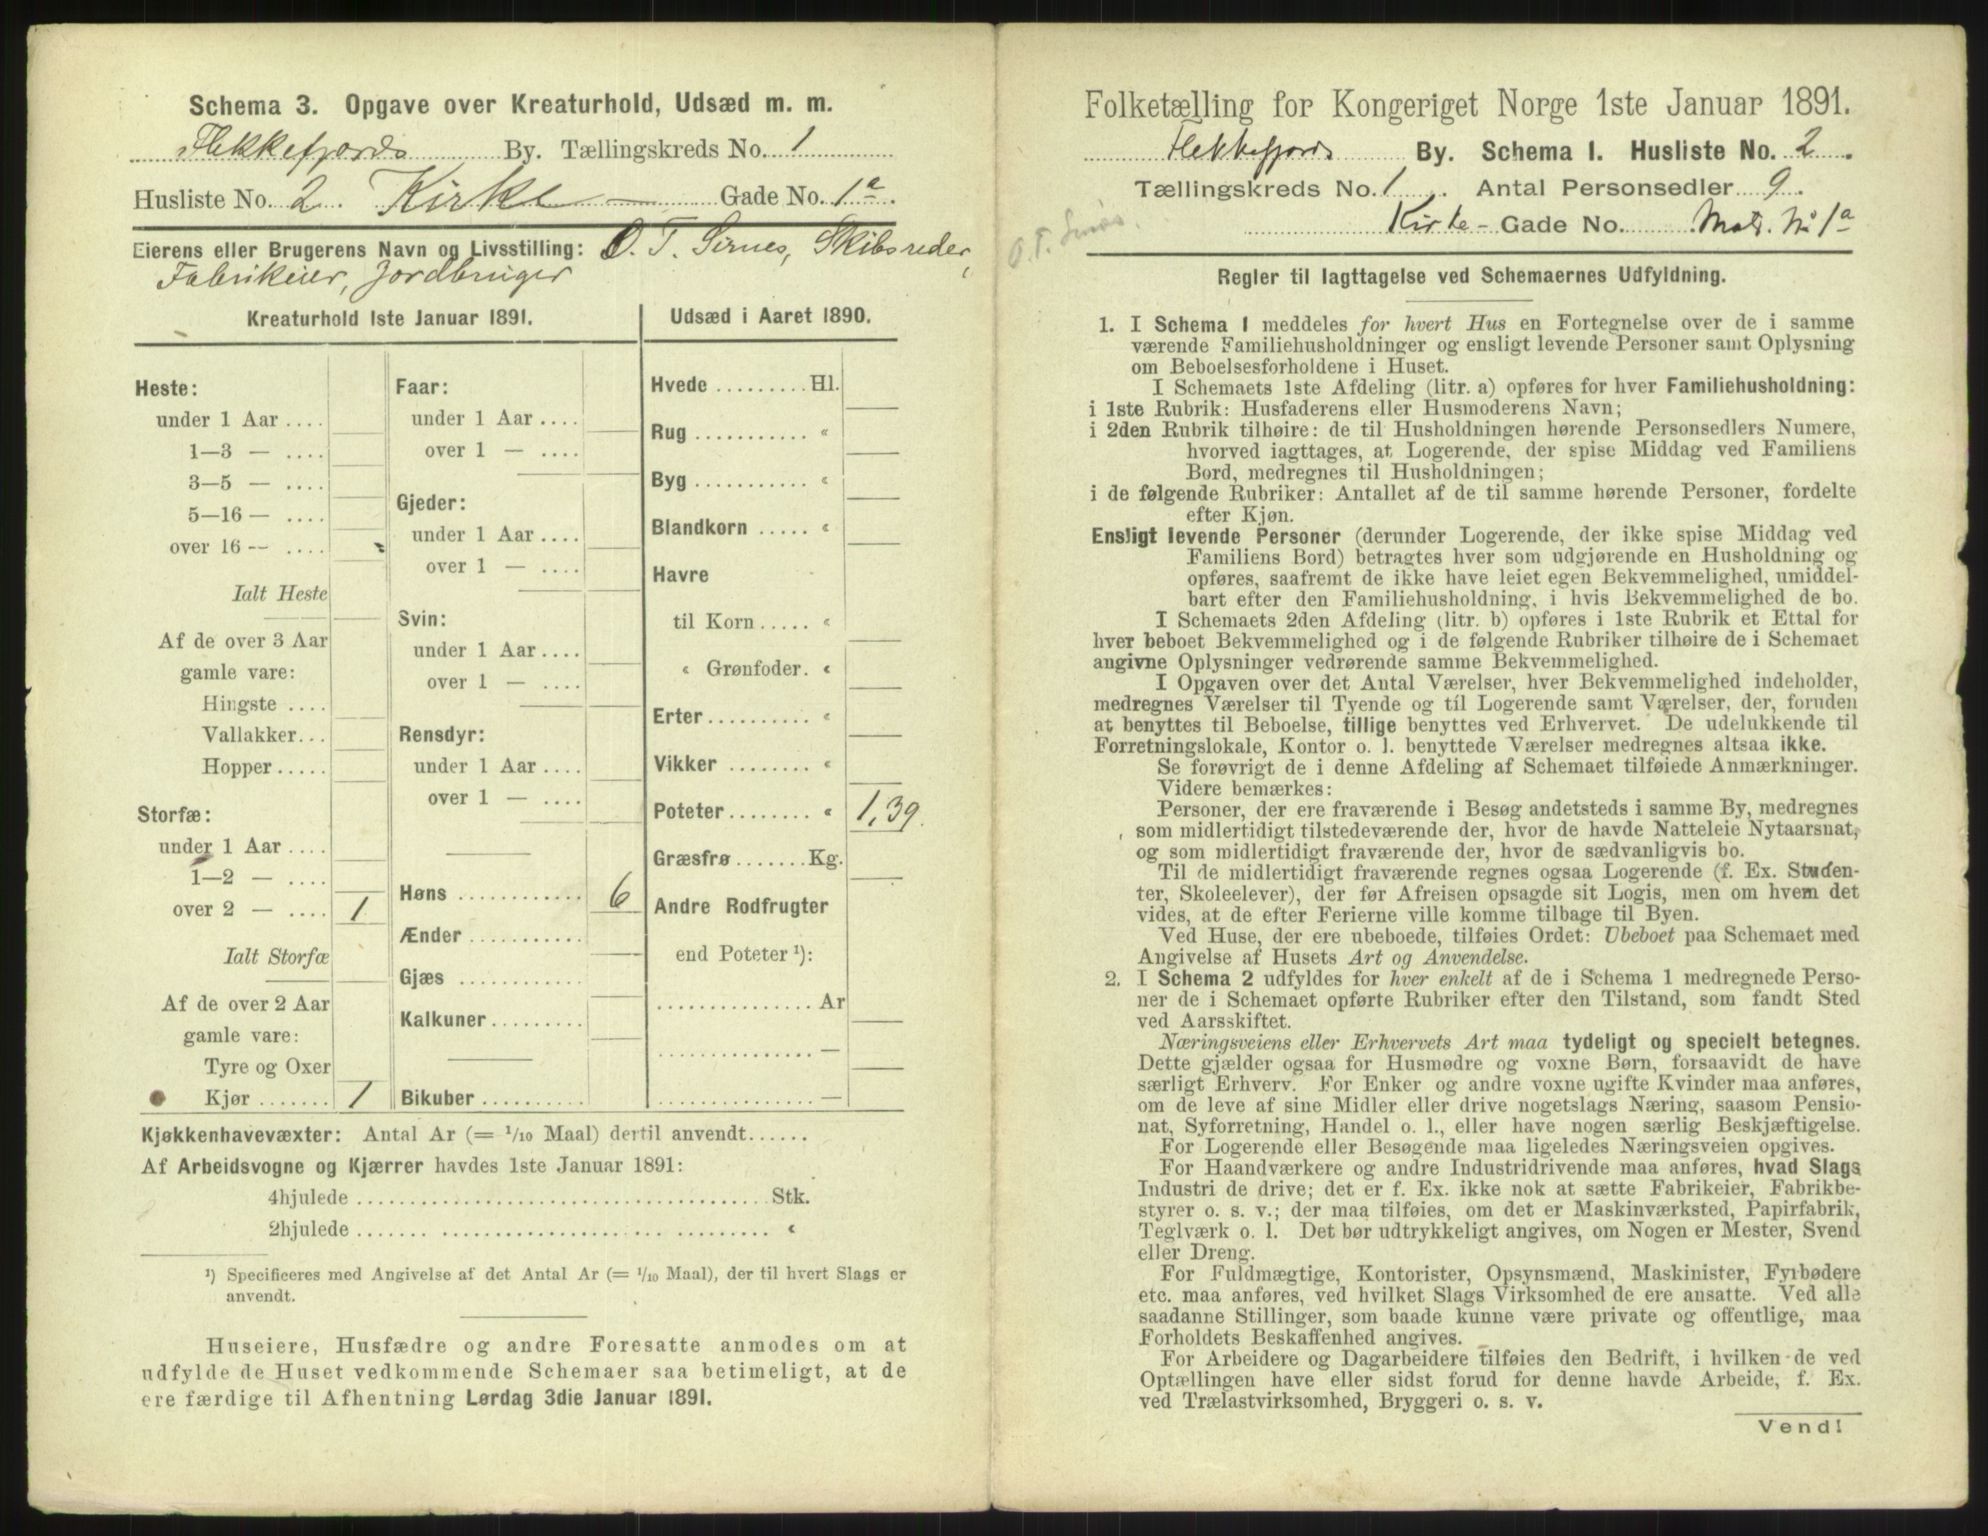 Schema 3. Opgave over Kreaturhold, Udsæd m. m.
Flekkefjords By. Tællingskreds No. 1
Husliste No. 2. Kirke – Gade No. 1a.
Eierens eller Brugerens Navn og Livsstilling: O. T. Sirnes, Skibsreder,
Fabrikeier, Jordbruger
Kreaturhold 1ste Januar 1891.
Heste:
under 1 Aar ....
1—3 — ....
3—5 — ....
5—16 — ....
over 16 — ....
Ialt Heste
Af de over 3 Aar
gamle vare:
Hingste ....
Vallakker...
Hopper .....
Storfæ:
under 1 Aar ....
1—2 — ....
over 2 — .... 1
Ialt Storfæ
Af de over 2 Aar
gamle vare:
Tyre og Oxer
Kjør ....... 1
Faar:
under 1 Aar ....
over 1 — ....
Gjeder:
under 1 Aar ....
over 1 — ....
Svin:
under 1 Aar ....
over 1 — ....
Rensdyr:
under 1 Aar ....
over 1 — ....
Høns ............ 6
Ænder ...........
Gjæs ............
Kalkuner.........
Bikuber ..........
Udsæd i Aaret 1890.
Hvede ......... Hl.
Rug ........... "
Byg ........... "
Blandkorn ..... "
Havre
til Korn ..... "
" Grønfoder. "
Erter .......... "
Vikker ........ "
Poteter ........ " 1,39.
Græsfrø ....... Kg.
Andre Rodfrugter
end Poteter ¹):
.............. Ar
.............. —
.............. —
Kjøkkenhavevæxter: Antal Ar (= 1/10 Maal) dertil anvendt......
Af Arbeidsvogne og Kjærrer havdes 1ste Januar 1891:
4hjulede ..................................... Stk.
2hjulede ..................................... "
¹) Specificeres med Angivelse af det Antal Ar (= 1/10 Maal), der til hvert Slags er
anvendt.
Huseiere, Husfædre og andre Foresatte anmodes om at
udfylde de Huset vedkommende Schemaer saa betimeligt, at de
ere færdige til Afhentning Lørdag 3die Januar 1891.
O. T. Sirnes.
Folketælling for Kongeriget Norge 1ste Januar 1891.
Flekkefjords By. Schema 1. Husliste No. 2.
Tællingskreds No. 1. Antal Personsedler 9.
Kirke - Gade No. Mat. No 1a
Regler til Iagttagelse ved Schemaernes Udfyldning.
1. I Schema 1 meddeles for hvert Hus en Fortegnelse over de i samme
værende Familiehusholdninger og ensligt levende Personer samt Oplysning
om Beboelsesforholdene i Huset.
I Schemaets 1ste Afdeling (litr. a) opføres for hver Familiehusholdning:
i 1ste Rubrik: Husfaderens eller Husmoderens Navn;
i 2den Rubrik tilhøire: de til Husholdningen hørende Personsedlers Numere,
hvorved iagttages, at Logerende, der spise Middag ved Familiens
Bord, medregnes til Husholdningen;
i de følgende Rubriker: Antallet af de til samme hørende Personer, fordelte
efter Kjøn.
Ensligt levende Personer (derunder Logerende, der ikke spise Middag ved
Familiens Bord) betragtes hver som udgjørende en Husholdning og
opføres, saafremt de ikke have leiet egen Bekvemmelighed, umiddel-
bart efter den Familiehusholdning, i hvis Bekvemmelighed de bo.
I Schemaets 2den Afdeling (litr. b) opføres i 1ste Rubrik et Ettal for
hver beboet Bekvemmelighed og i de følgende Rubriker tilhøire de i Schemaet
angivne Oplysninger vedrørende samme Bekvemmelighed.
I Opgaven over det Antal Værelser, hver Bekvemmelighed indeholder,
medregnes Værelser til Tyende og til Logerende samt Værelser, der, foruden
at benyttes til Beboelse, tillige benyttes ved Erhvervet. De udelukkende til
Forretningslokale, Kontor o. l. benyttede Værelser medregnes altsaa ikke.
Se forøvrigt de i denne Afdeling af Schemaet tilføiede Anmærkninger.
Videre bemærkes:
Personer, der ere fraværende i Besøg andetsteds i samme By, medregnes
som midlertidigt tilstedeværende der, hvor de havde Natteleie Nytaarsnat,
og som midlertidigt fraværende der, hvor de sædvanligvis bo.
Til de midlertidigt fraværende regnes ogsaa Logerende (f. Ex. Studen-
ter, Skoleelever), der før Afreisen opsagde sit Logis, men om hvem det
vides, at de efter Ferierne ville komme tilbage til Byen.
Ved Huse, der ere ubeboede, tilføies Ordet: Ubeboet paa Schemaet med
Angivelse af Husets Art og Anvendelse.
2. I Schema 2 udfyldes for hver enkelt af de i Schema 1 medregnede Perso-
ner de i Schemaet opførte Rubriker efter den Tilstand, som fandt Sted
ved Aarsskiftet.
Næringsveiens eller Erhvervets Art maa tydeligt og specielt betegnes.
Dette gjælder ogsaa for Husmødre og voxne Børn, forsaavidt de have
særligt Erhverv. For Enker og andre voxne ugifte Kvinder maa anføres,
om de leve af sine Midler eller drive nogetslags Næring, saasom Pensio-
nat, Syforretning, Handel o. l., eller have nogen særlig Beskjæftigelse.
For Logerende eller Besøgende maa ligeledes Næringsveien opgives.
For Haandværkere og andre Industridrivende maa anføres, hvad Slags
Industri de drive; det er f. Ex. ikke nok at sætte Fabrikeier, Fabrikbe-
styrer o. s. v.; der maa tilføies, om det er Maskinværksted, Papirfabrik,
Teglværk o. l. Det bør udtrykkeligt angives, om Nogen er Mester, Svend
eller Dreng.
For Fuldmægtige, Kontorister, Opsynsmænd, Maskinister, Fyrbødere
etc. maa anføres, ved hvilket Slags Virksomhed de ere ansatte. Ved alle
saadanne Stillinger, som baade kunne være private og offentlige, maa
Forholdets Beskaffenhed angives.
For Arbeidere og Dagarbeidere tilføies den Bedrift, i hvilken de ved
Optællingen have eller sidst forud for denne havde Arbeide, f. Ex.
ved Trælastvirksomhed, Bryggeri o. s. v.
Vend!